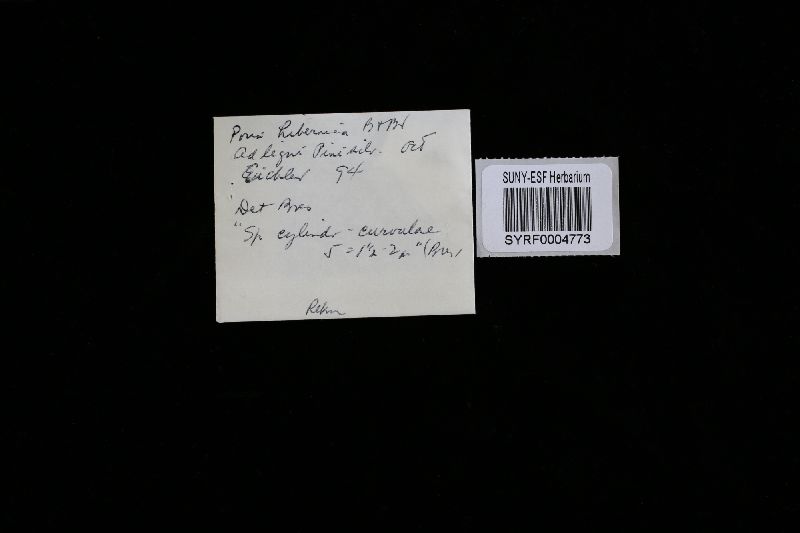 Poria hibernica B+Br
ad ligni Pini silv. Oct
Eichler 94
Det Bres
"Sp cylindr-curvulae
5 = 1½-2µ" (Bres)
Rehm
SUNY-ESF Herbarium
SYRF0004773